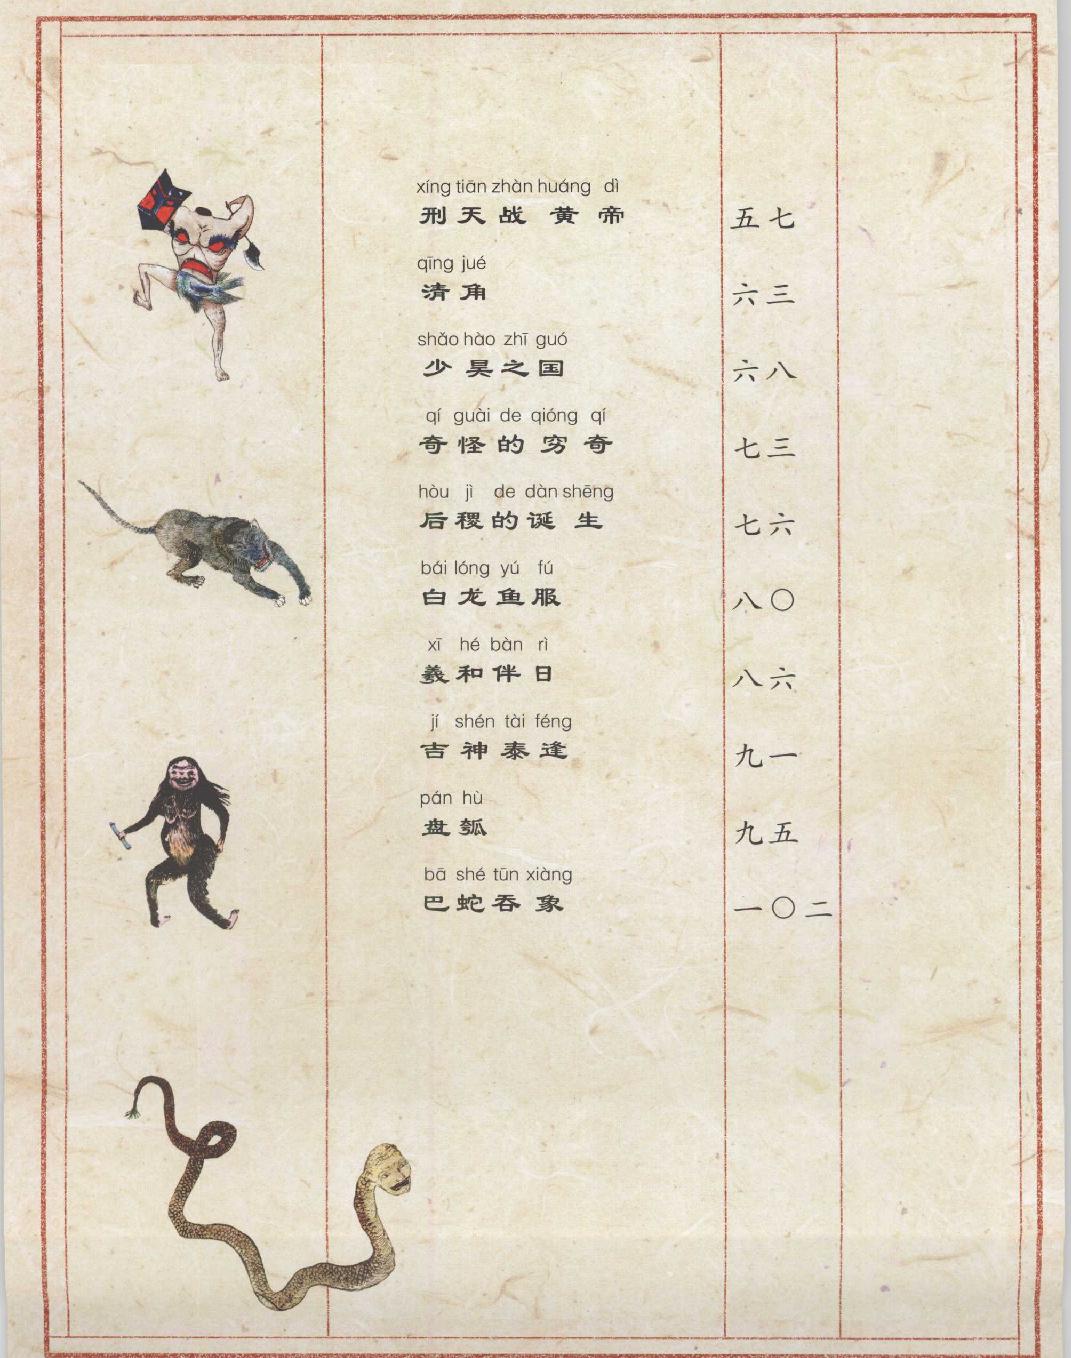 xíng tiān zhàn huáng dì
刑天战黄帝 五七
qīng jué
清角 六三
shǎo hào zhī guó
少昊之国 六八
qí guài de qióng qí
奇怪的穷奇 七三
hòu jì de dàn shēng
后稷的诞生 七六
bái lóng yú fú
白龙鱼服 八〇
xī hé bàn rì
羲和伴日 八六
jí shén tài féng
吉神泰逢 九一
pán hù
盘瓠 九五
bā shé tūn xiàng
巴蛇吞象 一〇二